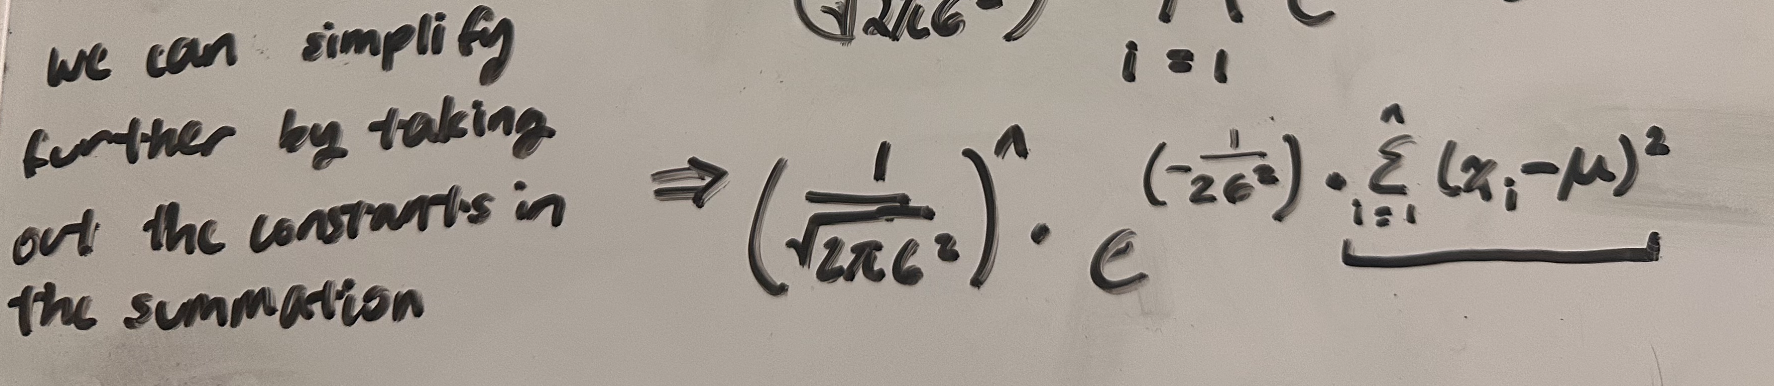 (√2πσ²) i=1
we can simplify
further by taking
out the constants in
the summation
⇒ (1/√2πσ²)ⁿ · e^((-1/2σ²) · Σⁿᵢ₌₁ (xᵢ-μ)²)